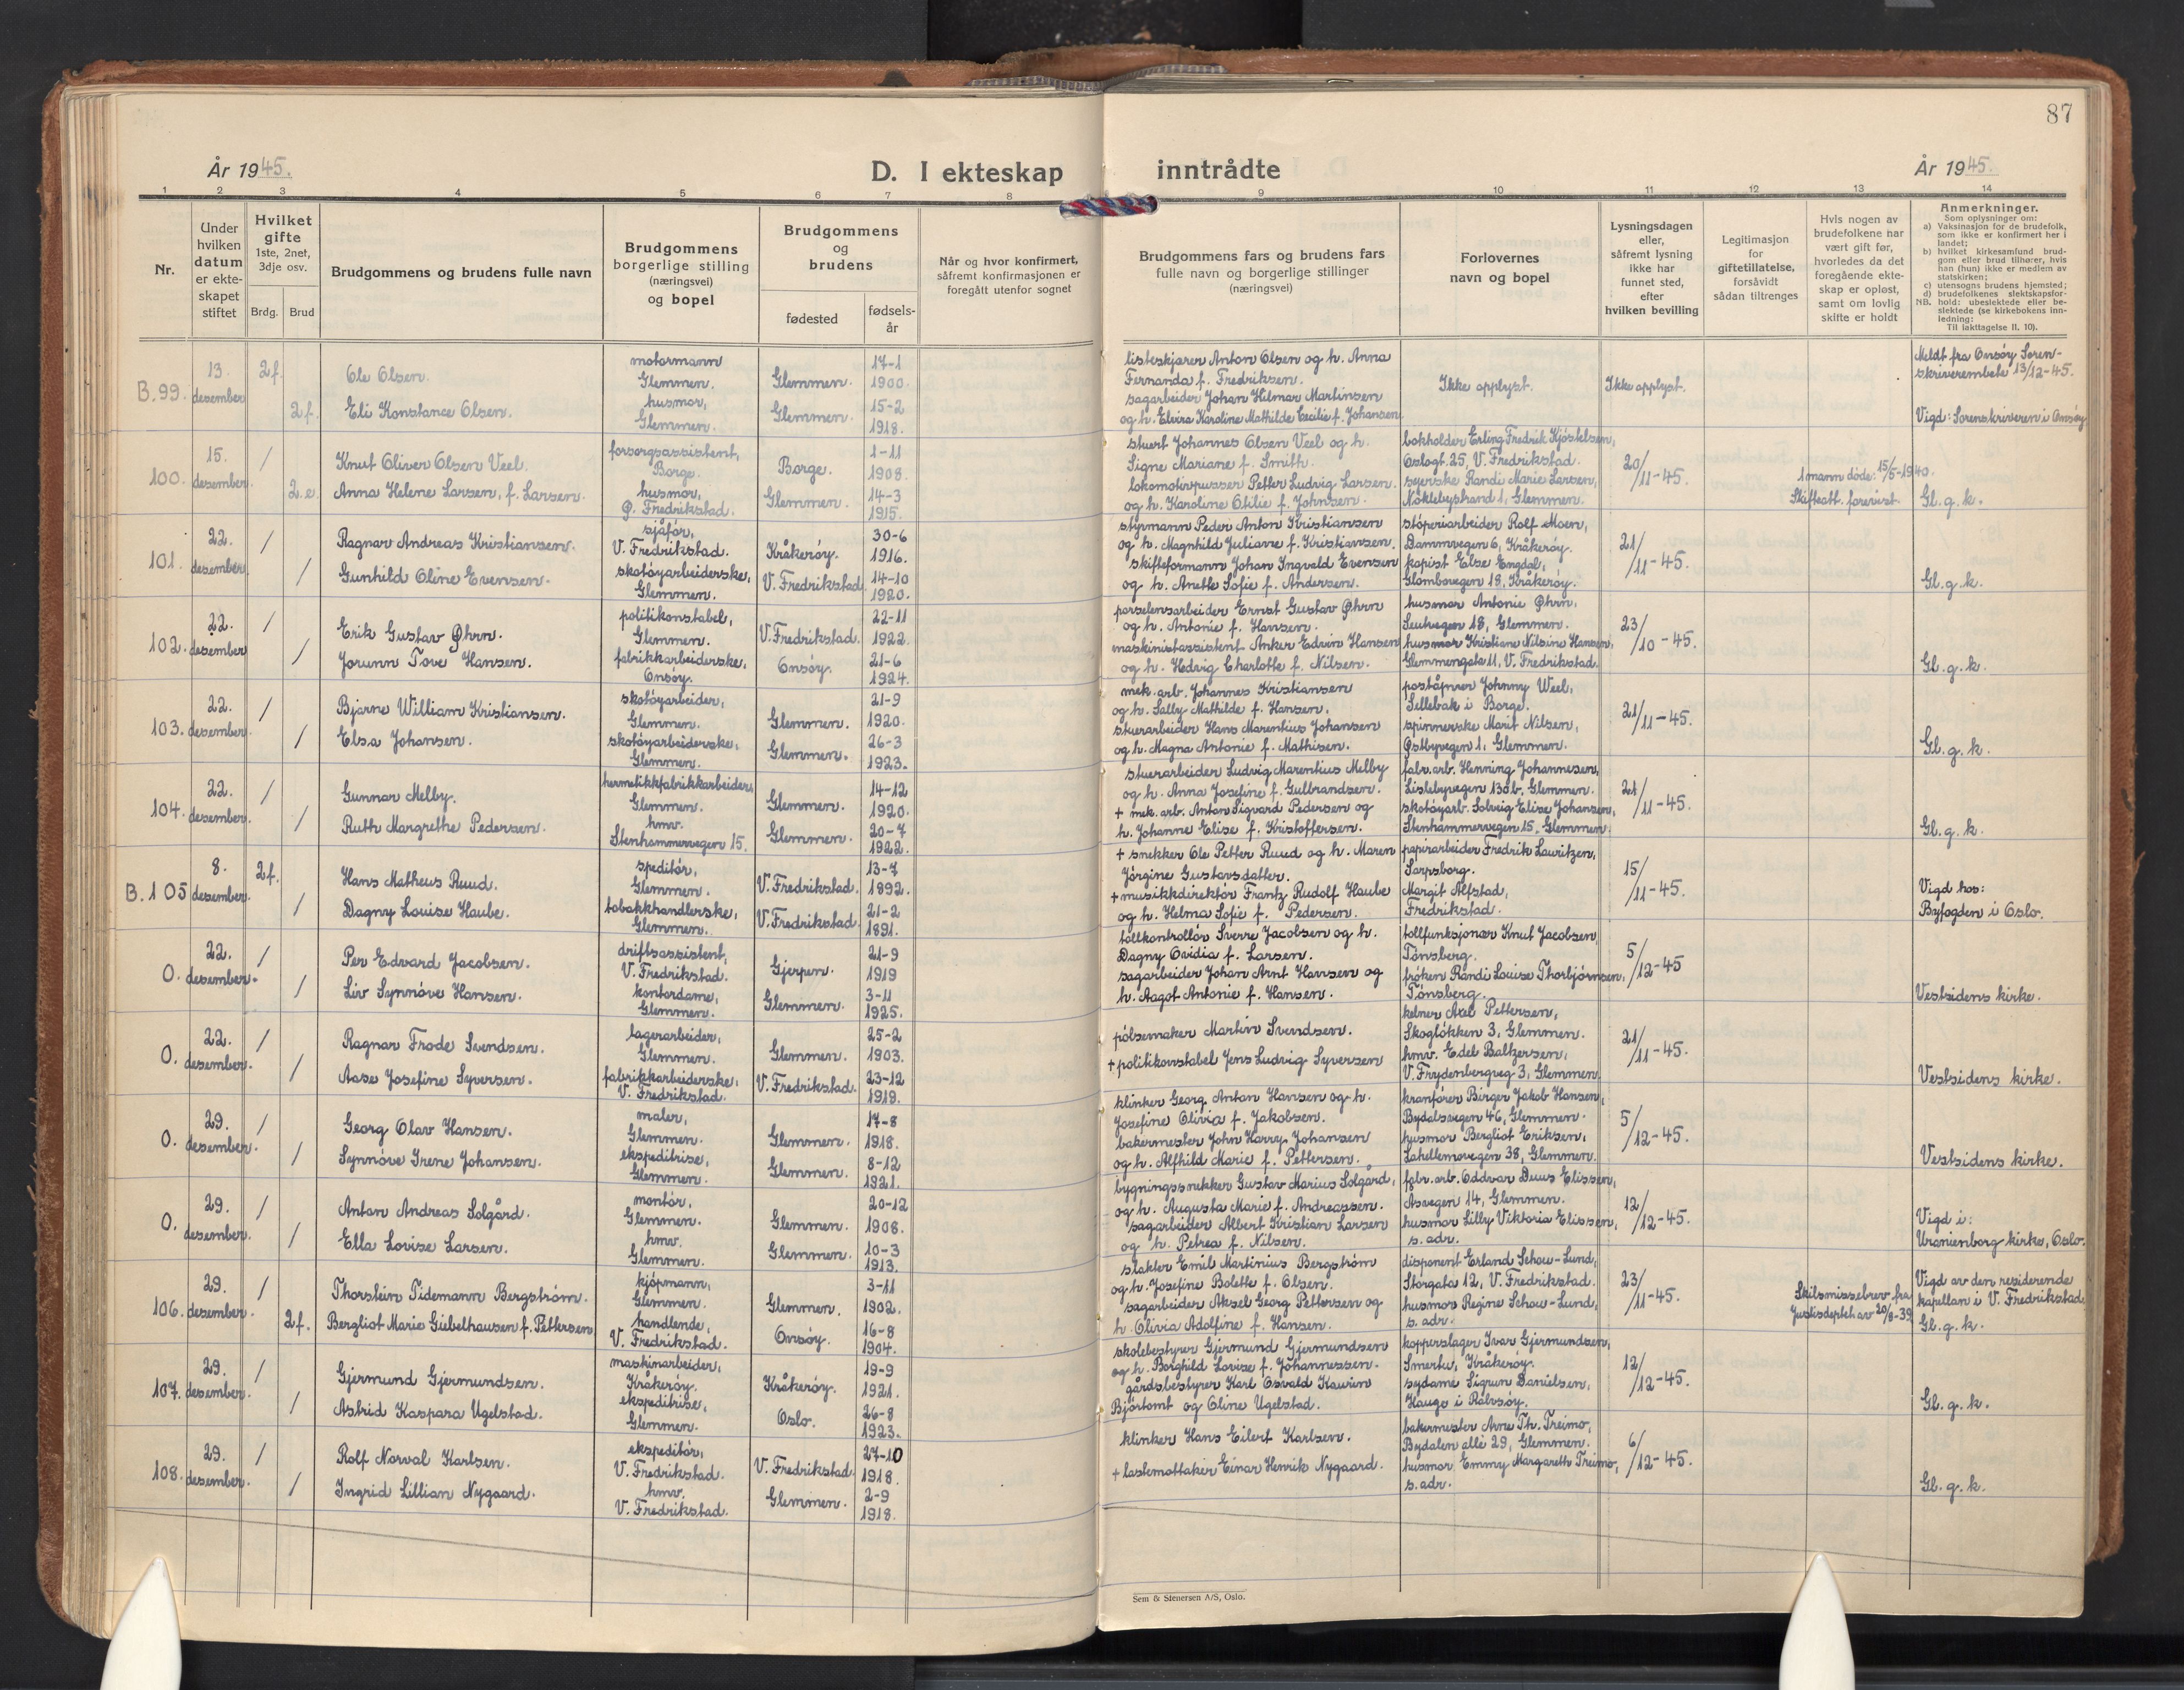 87
År 1945.
D. I ekteskap inntrådte
År 1945.
1 2 3 4 5 6 7 8 9 10 11 12 13 14
Nr.
Under hvilken datum er ekte-skapet stiftet
Hvilket gifte 1ste, 2net, 3dje osv.
Brdg. Brud
Brudgommens og brudens fulle navn
Brudgommens borgerlige stilling (næringsvei) og bopel
Brudgommens og brudens
fødested
fødsels-år
Når og hvor konfirmert, såfremt konfirmasjonen er foregått utenfor sognet
Brudgommens fars og brudens fars fulle navn og borgerlige stillinger (næringsvei)
Forlovernes navn og bopel
Lysningsdagen eller, såfremt lysning ikke har funnet sted, efter hvilken bevilling
Legitimasjon for giftetillatelse, forsåvidt sådan tiltrenges
Hvis nogen av brudefolkene har vært gift før, hvorledes da det foregående ekte-skap er opløst, samt om lovlig skifte er holdt
Anmerkninger.
Som oplysninger om:
a) Vaksinasjon for de brudefolk, som ikke er konfirmert her i landet;
b) hvilket kirkesamfund brud-gom eller brud tilhører, hvis han (hun) ikke er medlem av statskirken;
c) utensogns brudens hjemsted;
d) brudefolkenes slektskapsfor-hold: ubeslektede eller be-slektede (se kirkebokens inn-ledning:
NB.
Til iakttagelse II. 10).
B.99. 13. desember 2f. Ole Olsen. motormann Glemmen. Glemmen. 17-1 1900.
2f. Eli Konstance Olsen. husmor, Glemmen. Glemmen. 15-2 1918.
listeskjærer Anton Olsen og h. Anna
Fernanda f. Fredriksen.
sagarbeider Johan Hilmar Martinsen
og h. Elvira Karoline Mathilde Cecilie f. Johansen.
Ikke opplyst. Ikke opplyst.
Meldt fra Onsøy Soren-
skriverembete 13/12-45.
Vigd: Sorenskriveren i Onsøy
100. 15. desember. / Knut Oliver Olsen Veel. forsorgsassistent, Borge. Borge. 1-11 1908.
2.e. Anna Helene Larsen, f. Larsen. husmor, Ø. Fredrikstad. Glemmen. 14-3 1915.
stuert Johannes Olsen Veel og h.
Signe Mariane f. Smith.
lokomotivpusser Petter Ludvig Larsen.
og h. Karoline Otilie f. Johnsen.
bokholder Erling Fredrik Kjöstelsen,
Oslogt. 25, V. Fredrikstad.
syerske Randi Marie Larsen,
Nöklebystrand 1, Glemmen.
20/11-45.
1 mann döde: 15/5-1940.
Skifteatt. forevist.
Gl. g. k.
101. 22. desember. / Ragnar Andreas Kristiansen. sjåfør, V. Fredrikstad. Kråkeröy. 30-6 1916.
/ Gunhild Oline Evensen. skotöyarbeiderske, Glemmen. V. Fredrikstad 14-10 1920.
styrmann Peder Anton Kristiansen
og h. Magnhild Juliane f. Kristiansen.
skifteformann Johan Ingvald Evensen
og h. Anette Sofie f. Andersen.
stöperiarbeider Rolf Moen,
Dammvegen 6, Kråkeröy.
kopist Else Engdal,
Glombovegen 18, Kråkeröy.
21/11-45.
Gl. g. k.
102. 22. desember / Erik Gustav Øhrn. politikonstabel, Glemmen. V. Fredrikstad. 22-11 1922.
/ Jorunn Tove Hansen. fabrikkarbeiderske, Onsöy. Onsöy. 21-6 1924.
porselensarbeider Ernst Gustav Øhrn
og h. Antonie f. Hansen.
maskinistassistent Anker Edvin Hansen
og h. Hedvig Charlotte f. Nilsen.
husmor Antonie Øhrn,
Seutvegen 18, Glemmen.
husmor Kristiane Nilsine Hansen,
Glemmengata 11, V. Fredrikstad.
23/10-45.
Gl. g. k.
103. 22. desember. / Bjarne William Kristiansen. skotöyarbeider, Glemmen. Glemmen. 21-9 1920.
/ Elsa Johansen. skotöyarbeiderske, Glemmen. Glemmen. 26-3 1923.
mek. arb. Johannes Kristiansen
og h. Sally Mathilde f. Hansen.
stuerarbeider Hans Marentius Johansen
og h. Magna Antonie f. Mathisen.
poståpner Johnny Weel,
Sellebak i Borge.
spinnerske Marit Nilsen,
Østbyvegen 1, Glemmen.
21/11-45.
Gl. g. k.
104. 22. desember. / Gunnar Melby. hermetikkfabrikkarbeider, Glemmen. Glemmen. 14-12 1920.
/ Ruth Margrethe Pedersen. hmv. Stenhammervegen 15. Glemmen. 20-7 1922.
stuerarbeider Ludvig Marentius Melby
og h. Anna Josefine f. Gulbrandsen.
+ mek. arb. Anton Sigvard Pedersen og
h. Johanne Elise f. Kristoffersen.
fabr. arb. Henning Johannesen,
Lislebyvegen 130b, Glemmen.
skotöyarb. Solveig Elise Johansen,
Stenhammervegen 15, Glemmen.
21/11-45.
Gl. g. k.
B.105 8. desember. 2f. Hans Matheus Ruud. speditör, Glemmen. V. Fredrikstad. 13-7 1892.
/ Dagny Louise Haube. tobakkhandlerske, Glemmen. V. Fredrikstad. 21-2 1891.
+ snekker Ole Petter Ruud og h. Maren
Jörgine Gustavsdatter.
+ musikkdirektör Frantz Rudolf Haube
og h. Helma Sofie f. Pedersen.
papirarbeider Fredrik Lauritzen,
Sarpsborg.
Margit Alfstad,
Fredrikstad.
15/11-45.
Vigd hos:
Byfogden i Oslo.
0. 22. desember. / Per Edvard Jacobsen. driftsassistent, V. Fredrikstad. Gjerpen. 21-9 1919
/ Liv Synnöve Hansen. kontordame, Glemmen. Glemmen. 3-11 1925.
tollkontrollör Sverre Jacobsen og h.
Dagny Ovidia f. Larsen.
sagarbeider Johan Arnt Hansen og
h. Aagot Antonie f. Hansen.
tollfunksjonær Knut Jacobsen,
Tönsberg.
fröken Randi Louise Thorbjörnsen,
Tönsberg.
5/12-45
Vestsidens kirke.
0. 22. desember. / Ragnar Frode Svendsen. lagerarbeider, Glemmen. Glemmen. 25-2 1903.
/ Aase Josefine Syversen. fabrikkarbeiderske, V. Fredrikstad. V. Fredrikstad. 23-12 1919.
pölsemaker Martin Svendsen.
+ politikonstabel Jens Ludvig Syversen
kelner Axel Pettersen,
Skoglökken 3, Glemmen.
hmv. Edel Baltzersen,
V. Frydenbergveg 3, Glemmen.
21/11-45.
Vestsidens kirke.
0. 29. desember. / Georg Olav Hansen. maler, Glemmen. Glemmen. 17-8 1918.
/ Synnöve Irene Johansen. ekspeditrise, Glemmen. Glemmen. 8-12 1921.
klinker Georg Anton Hansen og h.
Josefine Olivia f. Jakobsen.
bakermester John Harry Johansen
og h. Alfhild Marie f. Pettersen.
kranförer Birger Jakob Hansen,
Bydalsvegen 46, Glemmen.
husmor Bergliot Eriksen,
Lahellemovegen 38, Glemmen.
5/12-45.
Vestsidens kirke.
0. 29. desember. / Anton Andreas Solgård. montör, Glemmen. Glemmen. 20-12 1908.
/ Ella Lovise Larsen. hmv. Glemmen. Glemmen. 10-3 1913.
bygningssnekker Gustav Marius Solgård,
og h. Augusta Marie f. Andreassen.
sagarbeider Albert Kristian Larsen
og h. Petrea f. Nilsen.
fabr. arb. Oddvar Duus Elissen,
Åsvegen 14, Glemmen.
husmor Lilly Viktoria Elissen,
s. adr.
12/12-45.
Vigd i:
Uranienborg kirke, Oslo.
106. 29. desember. / Thorstein Tidemann Bergström. kjöpmann, Glemmen. Glemmen. 3-11 1902.
2f. Bergliot Marie Giebelhausen f. Pettersen. handlende, V. Fredrikstad. Onsöy. 16-8 1904.
slakter Emil Martinius Bergström
og h. Josefine Bolette f. Olsen.
sagarbeider Aksel Georg Pettersen og
h. Olivia Adolfine f. Hansen.
disponent Erland Schou-Lund,
Storgata 12, V. Fredrikstad.
husmor Regine Schou-Lund,
s. adr.
23/11-45.
Skilsmissebrev fra
Justisdeptet av 20/8-39
Vigd av den residerende
kapellan i V. Fredrikstad.
Gl. g. k.
107. 29. desember. / Gjermund Gjermundsen. maskinarbeider, Kråkeröy. Kråkeröy. 19-9 1921.
/ Astrid Kaspara Ugelstad. ekspeditrise, Glemmen. Oslo. 26-8 1923.
skolebestyrer Gjermund Gjermundsen
og h. Borghild Lovise f. Johannessen.
gårdsbestyrer Karl Osvald Kaurin
Bjørtomt og Oline Ugelstad.
kopperslager Ivar Gjermundsen,
Smertu, Kråkeröy.
sydame Sigrun Danielsen,
Hauge i Rolvsöy.
12/12-45.
Gl. g. k.
108. 29. desember. / Rolf Norval Karlsen. ekspeditör, V. Fredrikstad. V. Fredrikstad. 27-10 1918.
/ Ingrid Lillian Nygaard. hmv. V. Fredrikstad. Glemmen. 2-9 1918.
klinker Hans Eilert Karlsen.
+ lastemottaker Einar Henrik Nygaard.
bakermester Arne Th. Treimo,
Bydalen allé 29, Glemmen.
husmor Emmy Margareth Treimo,
s. adr.
6/12-45.
Gl. g. k.
Sem & Stenersen A/S, Oslo.